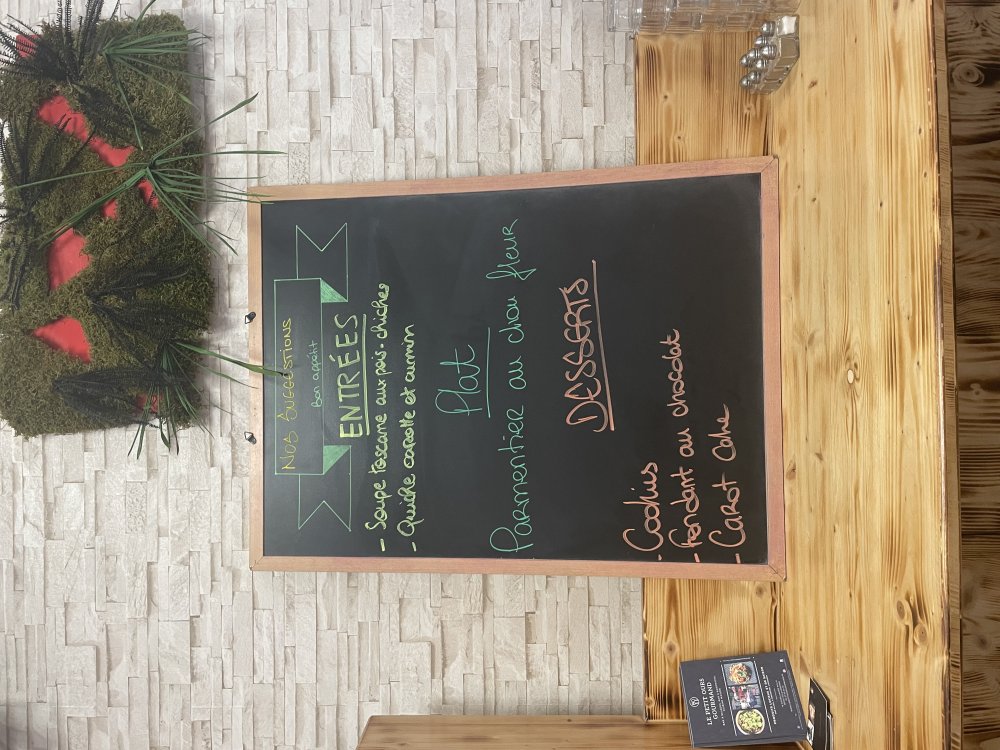 NOS SUGGESTIONS
Bon appétit
ENTRÉES
- Soupe toscane aux pois-chiches
- Quiche carotte et cumin
Plat
Parmentier au chou fleur
DESSERTS
- Cookies
- Fondant au chocolat
- Carot Cake
LE PETIT OURS
GOURMAND